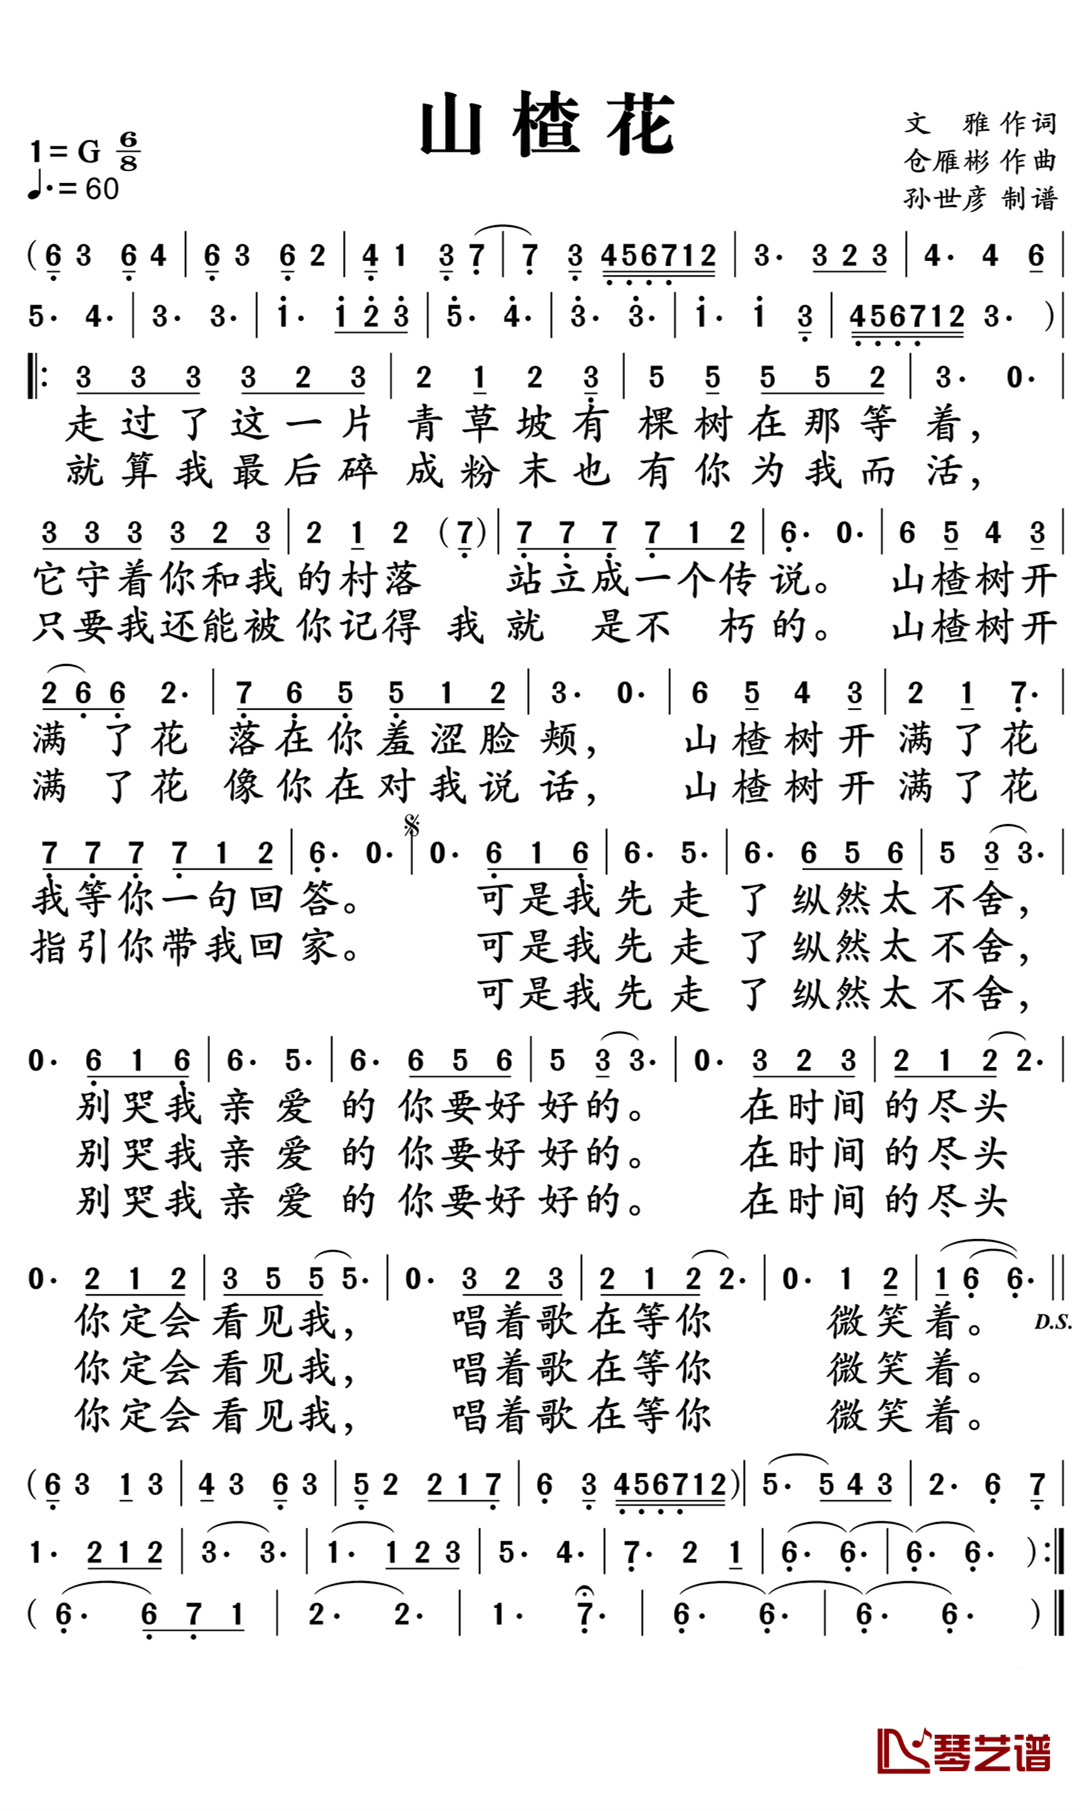 山楂花
文 雅 作词
1= G 6/8
仓雁彬 作曲
♩. = 60
孙世彦 制谱
( 6 3 6 4 | 6 3 6 2 | 4 1 3 7 | 7 3 456712 | 3· 3 2 3 | 4· 4 6 |
5· 4· | 3· 3· | 1· 1 2 3 | 5· 4· | 3· 3· | 1· 1 3 | 456712 3· ) |
|: 3 3 3 3 2 3 | 2 1 2 3 | 5 5 5 5 2 | 3· 0· |
走过了这一片 青草坡有 棵树在那等着,
就算我最后碎 成粉末也 有你为我而活,
3 3 3 3 2 3 | 2 1 2 (7) | 7 7 7 7 1 2 | 6· 0· | 6 5 4 3 |
它守着你和我 的村落 站立成一个传说。 山楂树开
只要我还能被 你记得 我就 是不 朽的。 山楂树开
2 6 6 2· | 7 6 5 5 1 2 | 3· 0· | 6 5 4 3 | 2 1 7· |
满 了花 落在你羞涩脸 颊, 山楂树开 满了花
满 了花 像你在对我说 话, 山楂树开 满了花
7 7 7 7 1 2 | 6· 0· | 0· 6 1 6 | 6· 5· | 6· 6 5 6 | 5 3 3· |
我等你一句回 答。 可是我 先 走 了 纵然太 不舍,
指引你带我回 家。 可是我 先 走 了 纵然太 不舍,
可是我 先 走 了 纵然太 不舍,
0· 6 1 6 | 6· 5· | 6· 6 5 6 | 5 3 3· | 0· 3 2 3 | 2 1 2 2· |
别哭我 亲 爱 的 你要好 好的。 在时间 的尽头
别哭我 亲 爱 的 你要好 好的。 在时间 的尽头
别哭我 亲 爱 的 你要好 好的。 在时间 的尽头
0· 2 1 2 | 3 5 5 5· | 0· 3 2 3 | 2 1 2 2· | 0· 1 2 | 1 6 6· ||
你定会 看见我, 唱着歌 在等你 微笑 着。 D.S.
你定会 看见我, 唱着歌 在等你 微笑 着。
你定会 看见我, 唱着歌 在等你 微笑 着。
( 6 3 1 3 | 4 3 6 3 | 5 2 2 1 7 | 6 3 456712 ) | 5· 5 4 3 | 2· 6 7 |
1· 2 1 2 | 3· 3· | 1· 1 2 3 | 5· 4· | 7· 2 1 | 6· 6· | 6· 6· ) :|
( 6· 6 7 1 | 2· 2· | 1· 7· | 6· 6· | 6· 6· ) ||
琴艺谱